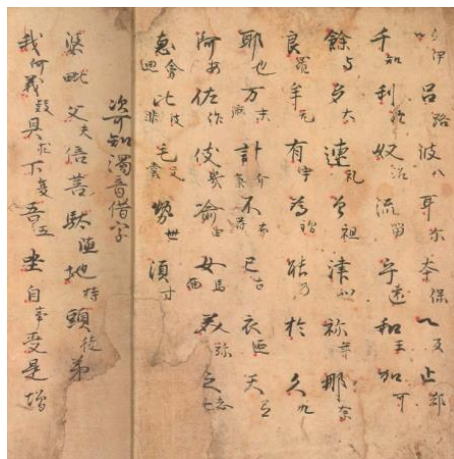 伊呂路波八耳尓本保へ反止都
千知利理奴沼流留乎遠和王加可
餘与多太連礼曽祖津祢年那奈
良羅牟无有宇為謂能乃於久九
耶也万末麻計介気不布符己古衣延天弖
阿安佐作伎畿喩由女馬面美弥之志士
恵會廻比皮非毛文裳勢世須寸
次可知濁音借字
婆毗父夫倍菩駄陁地持頭徒弟
我何義疑具求下夏吾五坐自事受是増